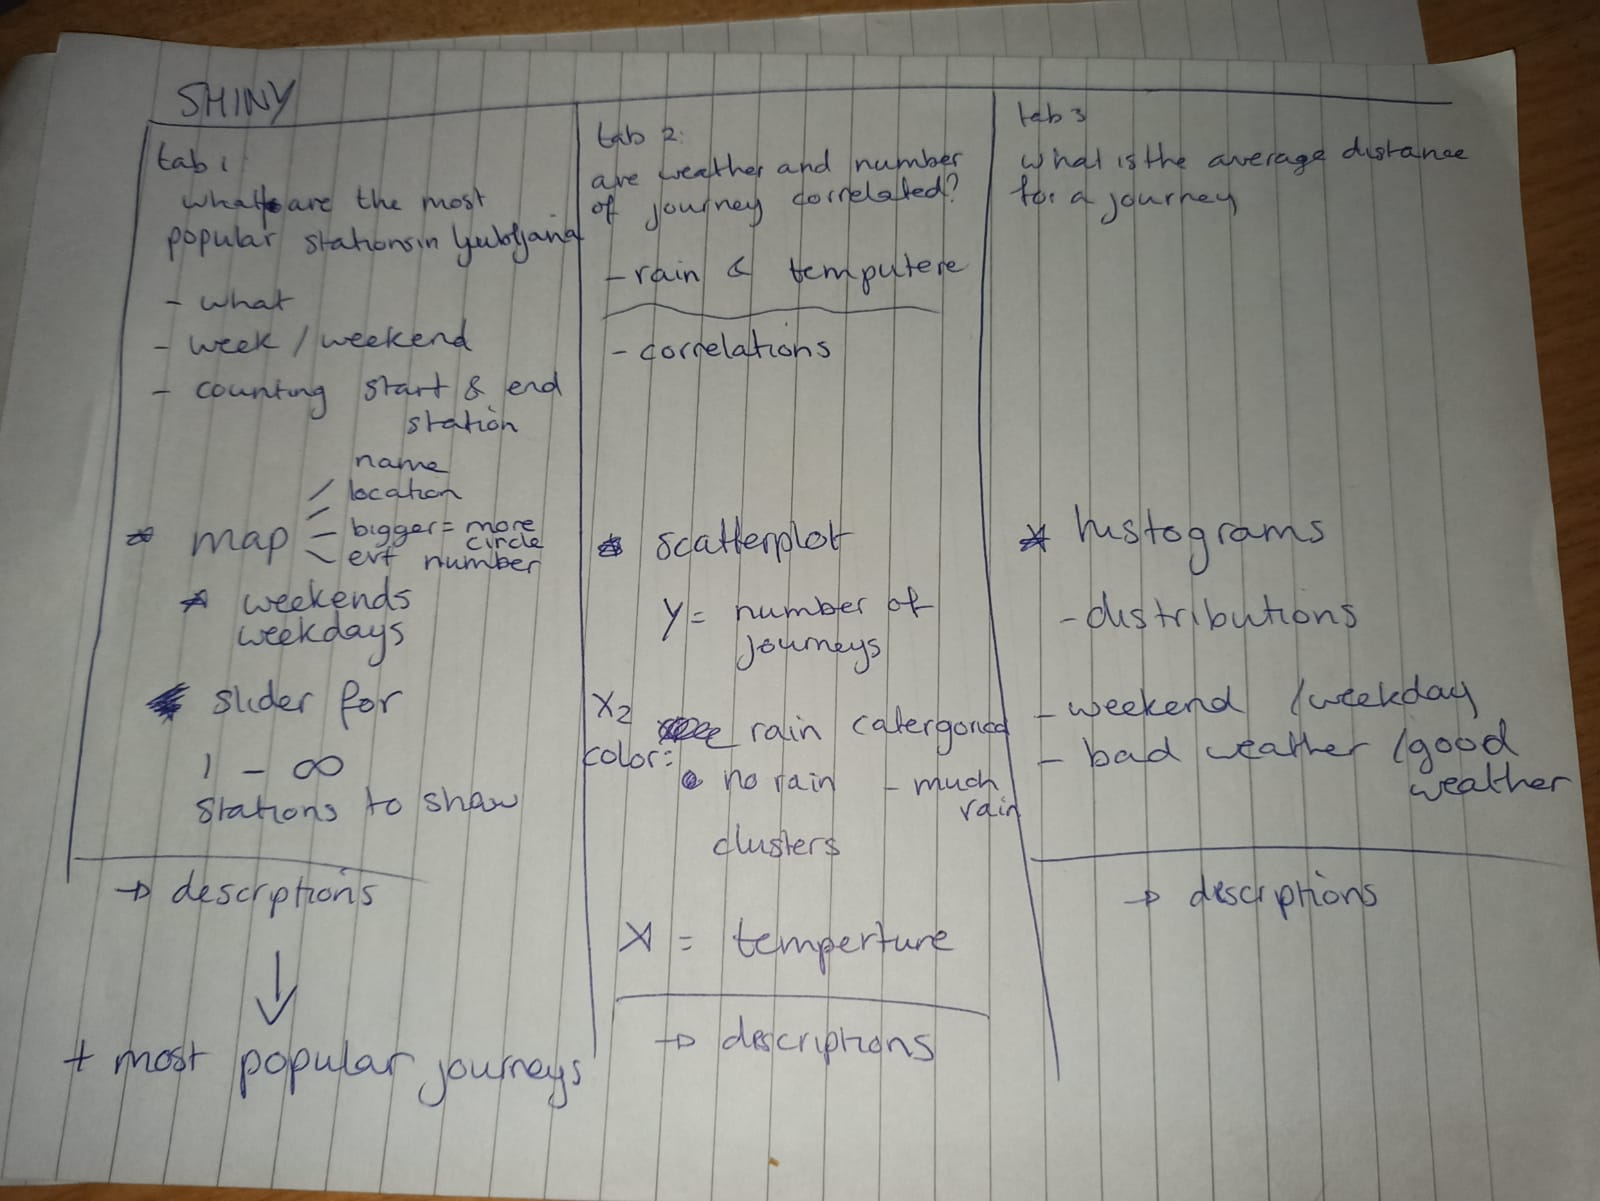 SHINY
tab 1
what are the most
popular stations in ljubljana
- what
- week / weekend
- counting start & end
station
name
location
* map
- bigger = more
circle
number
* weekends
weekdays
slider for
1 - ∞
stations to show
→ descriptions
+ most popular journeys
tab 2:
are weather and number
of journey correlated?
- rain & temputere
- correlations
* scatterplot
Y = number of
journeys
X2
color:
rain catergoried
• no rain - much
rain
clusters
X = temperture
→ descriptions
tab 3
what is the average distance
for a journey
* histograms
- distributions
- weekend / weekday
- bad weather / good
weather
→ descriptions